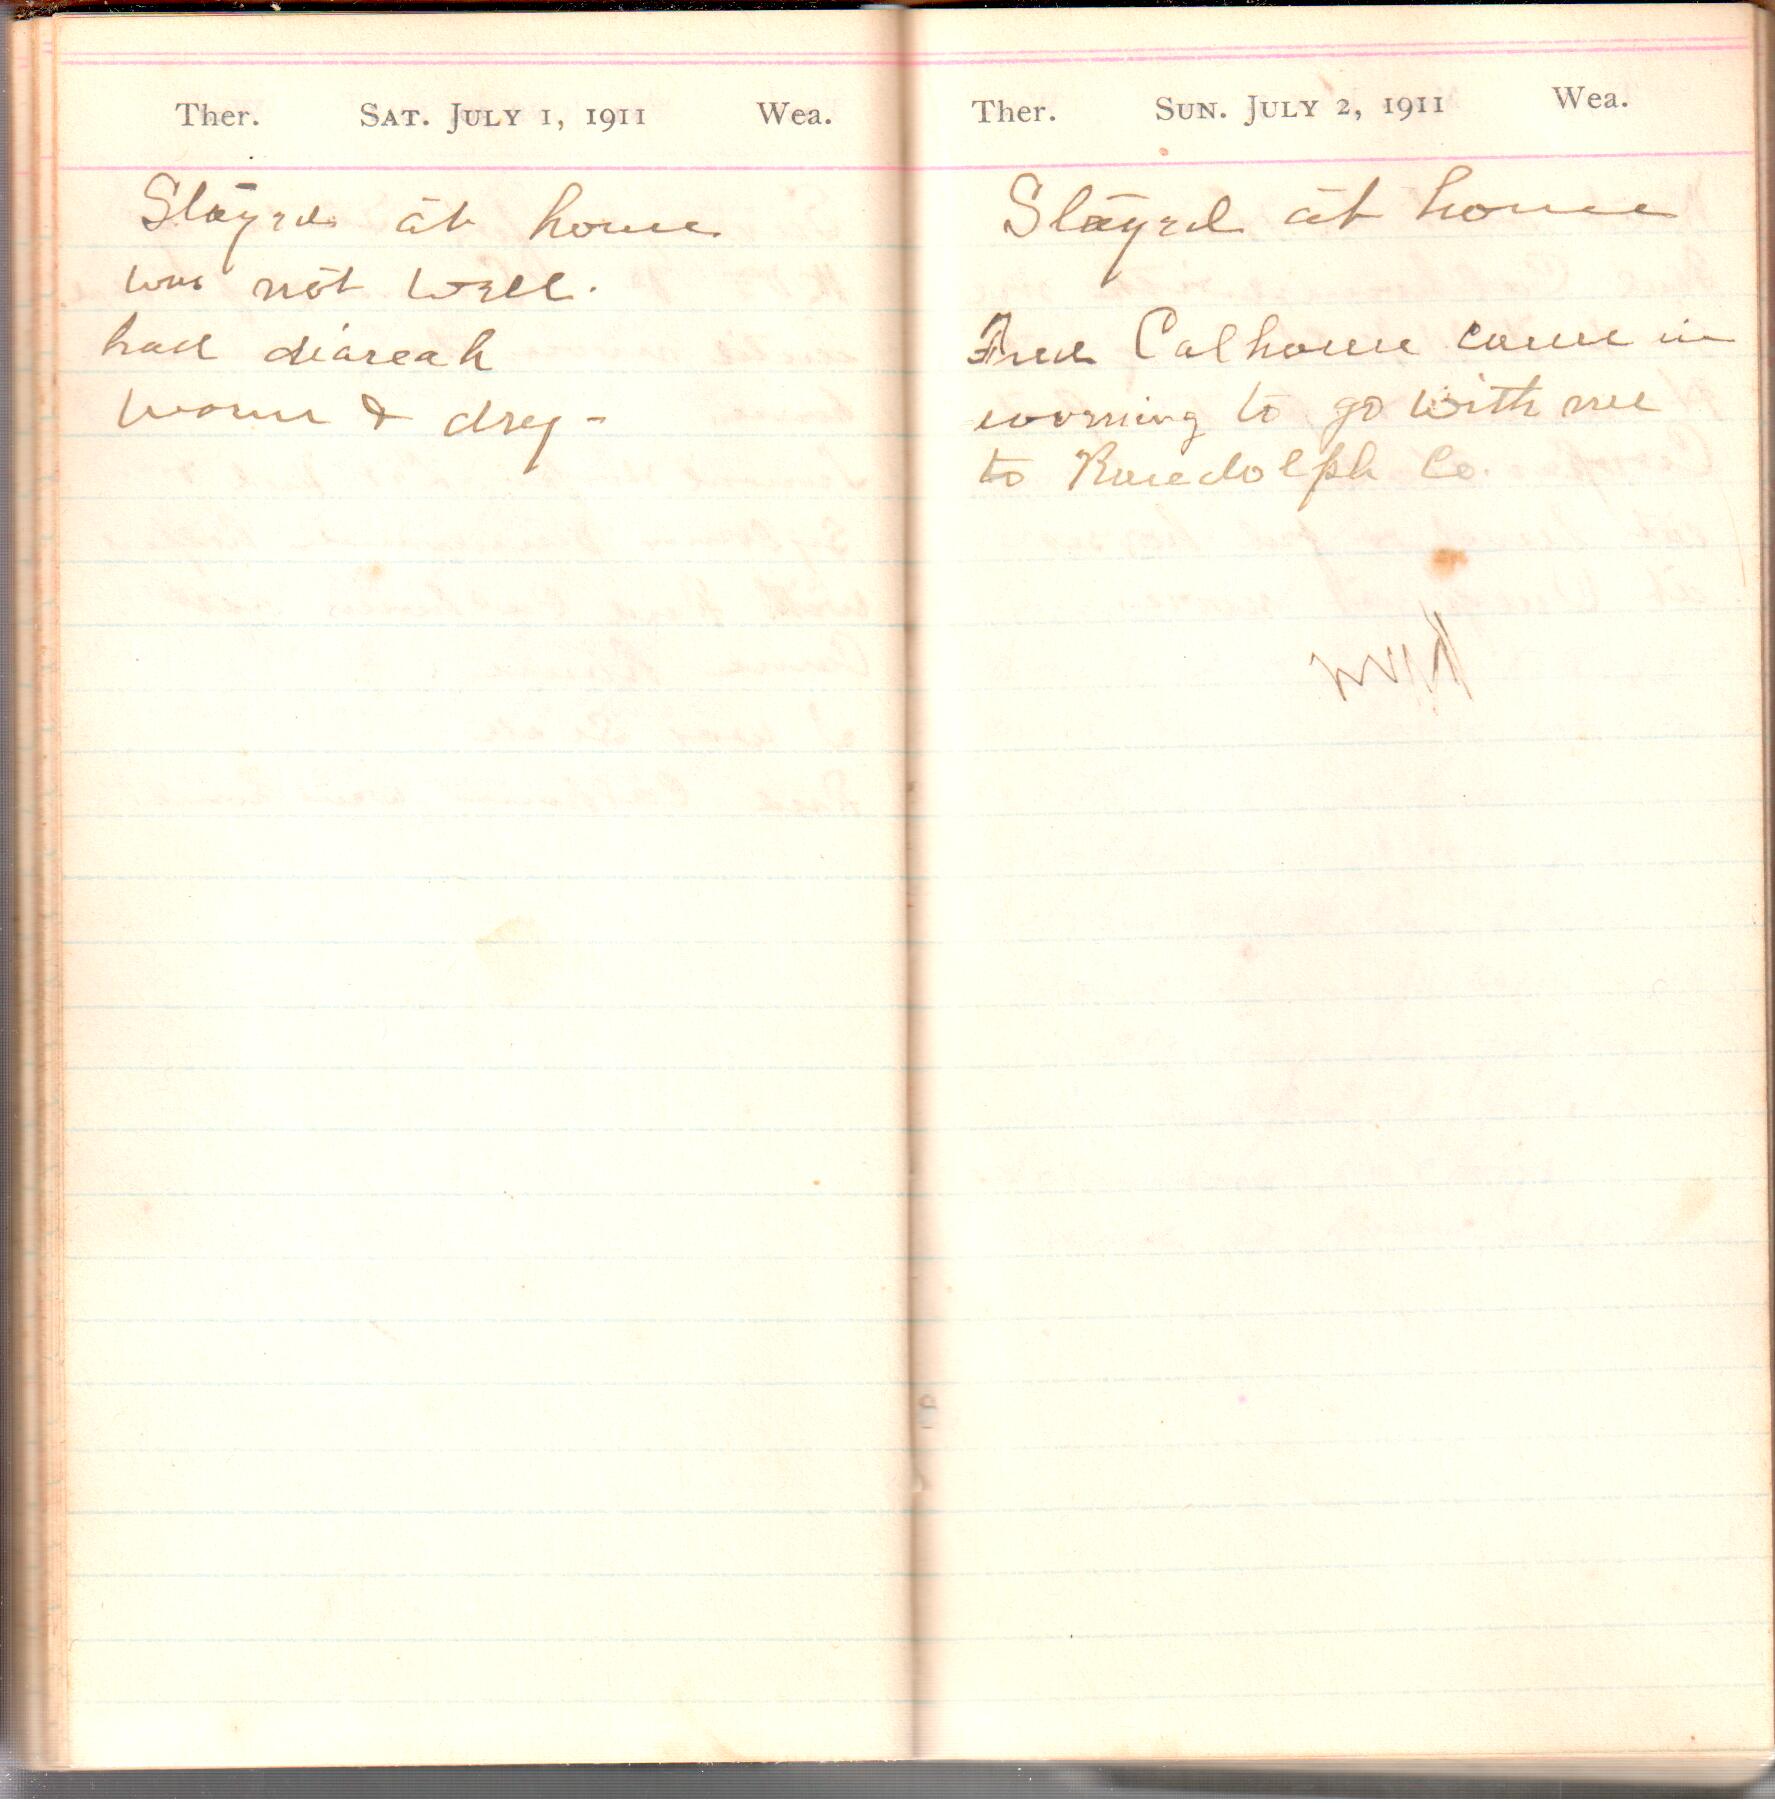 Ther. SAT. JULY 1, 1911 Wea.
Stayed at home
was not well.
had diareah
warm & dry -
Ther. SUN. JULY 2, 1911 Wea.
Stayed at home
Fred Calhoun came in
evening to go with me
to Randolph Co.